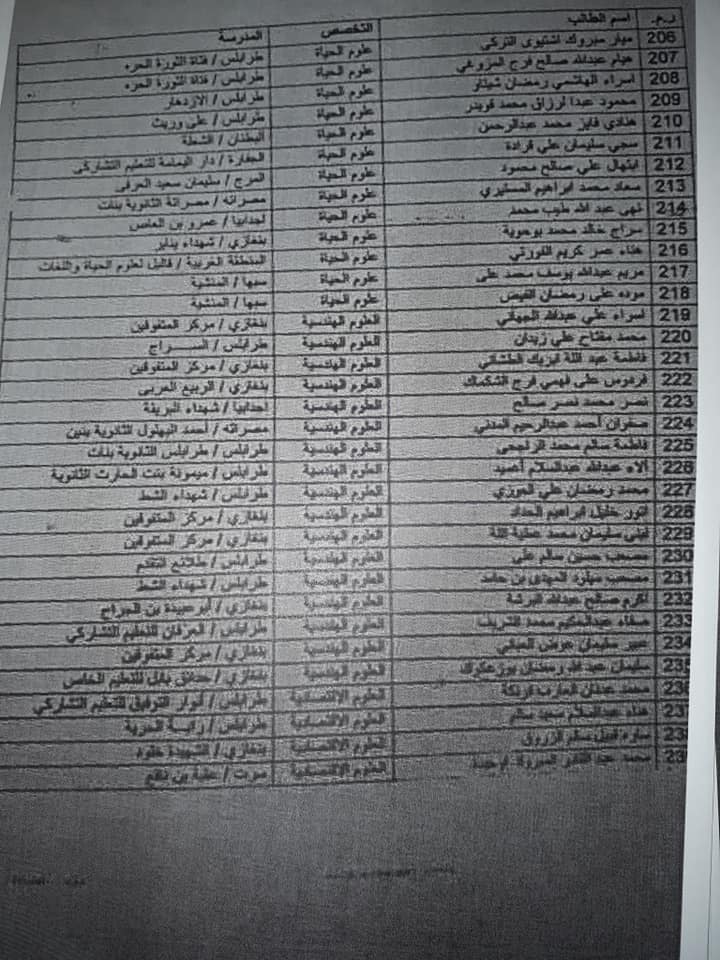 ر.م. اسم الطالب التخصص المدرسة
206 ميار مبروك اشتيوى التركي علوم الحياة طرابلس / فتاة الثورة الحره
207 هيام عبدالله صالح فرج المزوغي علوم الحياة طرابلس / فتاة الثورة الحره
208 اسراء الهاشمي رمضان شيتار علوم الحياة طرابلس / الازدهار
209 محمود عبدا لرزاق محمد قويدر علوم الحياة طرابلس / على وريث
210 هنادي فايز محمد عبدالرحمن علوم الحياة البطنان / الشعلة
211 سجي سليمان علي قرادة علوم الحياة الجفارة / دار اليمامة للتعليم التشاركي
212 ابتهال علي صالح محمود علوم الحياة المرج / سليمان سعيد العرفى
213 سعاد محمد ابراهيم المستيري علوم الحياة مصراته / مصراتة الثانوية بنات
214 نهي عبد الله طيب محمد علوم الحياة اجدابيا / عمرو بن العاص
215 سراج خالد محمد بوحوية علوم الحياة بنغازي / شهداء يناير
216 هناء عمر كريم الفورتي علوم الحياة المنطقة الغربية / قاليل لعلوم الحياة واللغات
217 مريم عبدالله يوسف محمد على علوم الحياة سبها / المنشية
218 موده على رمضان الفيض علوم الحياة سبها / المنشية
219 اسراء علي عبدالله الجهاني العلوم الهندسية بنغازي / مركز المتفوقين
220 محمد مفتاح علي زيدان العلوم الهندسية طرابلس / الســـراج
221 فاطمة عبد اللة ابريك الطشاني العلوم الهندسية بنغازي / مركز المتفوقين
222 فردوس على فهمي فرج الشكماك العلوم الهندسية بنغازي / الربيع العربى
223 نصر محمد نصر صالح العلوم الهندسية اجدابيا / شهداء البريقة
224 صفوان أحمد عبدالرحيم المدني العلوم الهندسية مصراته / أحمد البهلول الثانوية بنين
225 فاطمة سالم محمد الراجحي العلوم الهندسية طرابلس / طرابلس الثانوية بنات
226 ألاء عبدالله عبدالسلام أحميد العلوم الهندسية طرابلس / ميمونة بنت الحارث الثانوية
227 محمد رمضان علي العلوم الهندسية طرابلس / شهداء الشط
228 أنور خليل ابراهيم الحداد العلوم الهندسية بنغازي / مركز المتفوقين
229 ليلى سليمان محمد عطية اللة العلوم الهندسية بنغازي / مركز المتفوقين
230 مصعب حسين سالم على العلوم الهندسية طرابلس / طلائع التقدم
231 مصعب ميلود المهدى بن حامد العلوم الهندسية طرابلس / شهداء الشط
232 أكرم صالح عبدالله البرشة العلوم الهندسية بنغازي / أبوعبيدة بن الجراح
233 صفاء عبدالحكيم محمد الشريف العلوم الهندسية طرابلس / العرفان للتعليم التشاركي
234 عبير سليمان عوض العلوم الهندسية بنغازي / مركز المتفوقين
235 سليمان عبد الله رمضان العلوم الهندسية بنغازي / حدائق بابل للتعليم الخاص
محمد عدنان العلوم الاقتصادية طرابلس / أنوار التوفيق للتعليم التشاركي
هناء عبدالسلام سعيد سالم العلوم الاقتصادية طرابلس / رايـة الحرية
ساره نبيل سالم الزروق العلوم الاقتصادية بنغازي / الشهيدة خلود
محمد عبد القادر المبروك العلوم الاقتصادية سرت / عقبة بن نافع